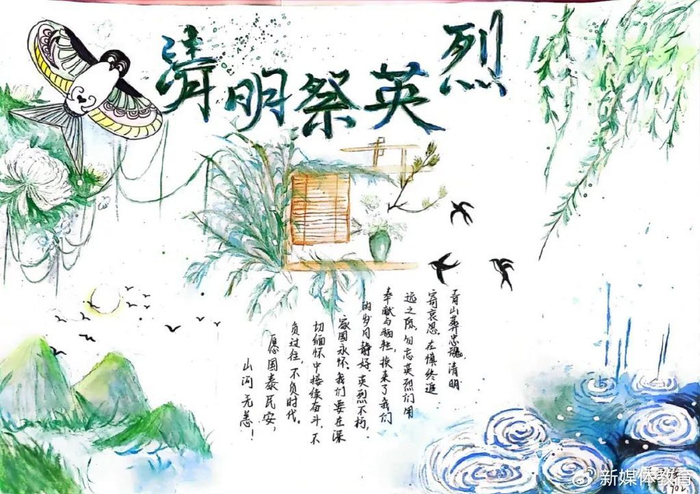 清明祭英烈
青山葬忠魂,清明
寄哀思。在慎终追
远之际,勿忘英烈们用
奉献与牺牲,换来了我们
的岁月静好。英烈不朽,
家国永怀。我们要在深
切缅怀中接续奋斗,不
负过往,不负时代。
愿国泰民安,
山河无恙!
@新媒体教育